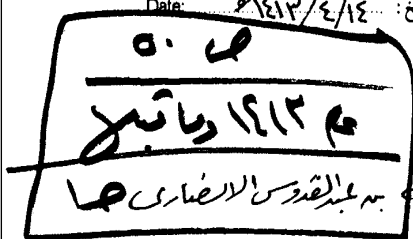 Date: ١٤١٣/٤/١٤
ص ٥٠
عام ١٤١٣ وما قبلها
بن عبدالقدوس الانصاري